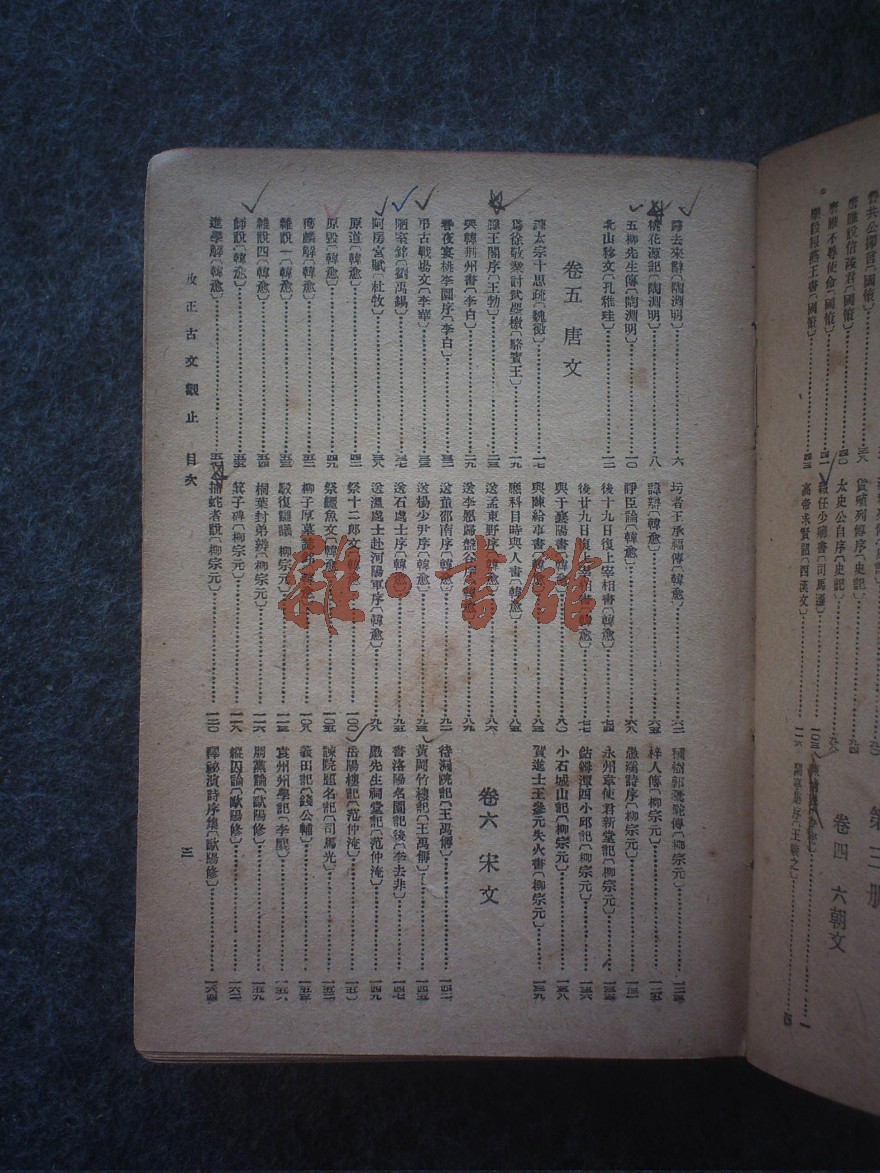 歸去來辭〔陶淵明〕 六
桃花源記〔陶淵明〕 八
五柳先生傳〔陶淵明〕 一〇
北山移文〔孔稚珪〕 一二
卷五 唐文
諫太宗十思疏〔魏徵〕 一七
爲徐敬業討武曌檄〔駱賓王〕 一九
滕王閣序〔王勃〕 二三
與韓荆州書〔李白〕 二九
春夜宴桃李園序〔李白〕 三三
弔古戰場文〔李華〕
陋室銘〔劉禹錫〕 三七
阿房宮賦〔杜牧〕 三八
原道〔韓愈〕
原毀〔韓愈〕 四九
獲麟解〔韓愈〕 五二
雜說一〔韓愈〕 五三
雜說四〔韓愈〕 五四
師說〔韓愈〕 五五
進學解〔韓愈〕
圬者王承福傳〔韓愈〕 六二
諱辯〔韓愈〕 六五
諍臣論〔韓愈〕 六八
後十九日復上宰相書〔韓愈〕
後廿九日復上宰相書〔韓愈〕 七七
與于襄陽書〔韓愈〕 八〇
與陳給事書〔韓愈〕 八三
應科目時與人書〔韓愈〕 八五
送孟東野序〔韓愈〕 八六
送李愿歸盤谷序〔韓愈〕
送董邵南序〔韓愈〕 九二
送楊少尹序〔韓愈〕 九三
送石處士序〔韓愈〕 九五
送溫處士赴河陽軍序〔韓愈〕 九八
祭十二郎文〔韓愈〕 一〇〇
祭鱷魚文〔韓愈〕 一〇五
柳子厚墓誌銘〔韓愈〕 一〇八
駁復讎議〔柳宗元〕 一一三
桐葉封弟辨〔柳宗元〕 一一六
箕子碑〔柳宗元〕 一一八
捕蛇者說〔柳宗元〕 一二〇
種樹郭橐駝傳〔柳宗元〕 一二三
梓人傳〔柳宗元〕 一二五
愚溪詩序〔柳宗元〕 一三一
永州韋使君新堂記〔柳宗元〕 一三三
鈷鉧潭西小邱記〔柳宗元〕 一三六
小石城山記〔柳宗元〕 一三八
賀進士王參元失火書〔柳宗元〕 一三九
卷六 宋文
待漏院記〔王禹偁〕 一四二
黃岡竹樓記〔王禹偁〕 一四五
書洛陽名園記後〔李去非〕 一四七
嚴先生祠堂記〔范仲淹〕 一四九
岳陽樓記〔范仲淹〕 一五〇
諫院題名記〔司馬光〕 一五三
義田記〔錢公輔〕
袁州州學記〔李覯〕
朋黨論〔歐陽修〕 一五九
縱囚論〔歐陽修〕 一六二
釋祕演詩序集〔歐陽修〕 一六四
改正古文觀止 目次
三
唐雎說信陵君〔國策〕
唐雎不辱使命〔國策〕
樂毅報燕王書〔國策〕
貨殖列傳序〔史記〕
太史公自序〔史記〕
報任少卿書〔司馬遷〕 一〇三
高帝求賢詔〔西漢文〕 一一六
第三册
卷四 六朝文
蘭亭集序〔王羲之〕
雜·書館